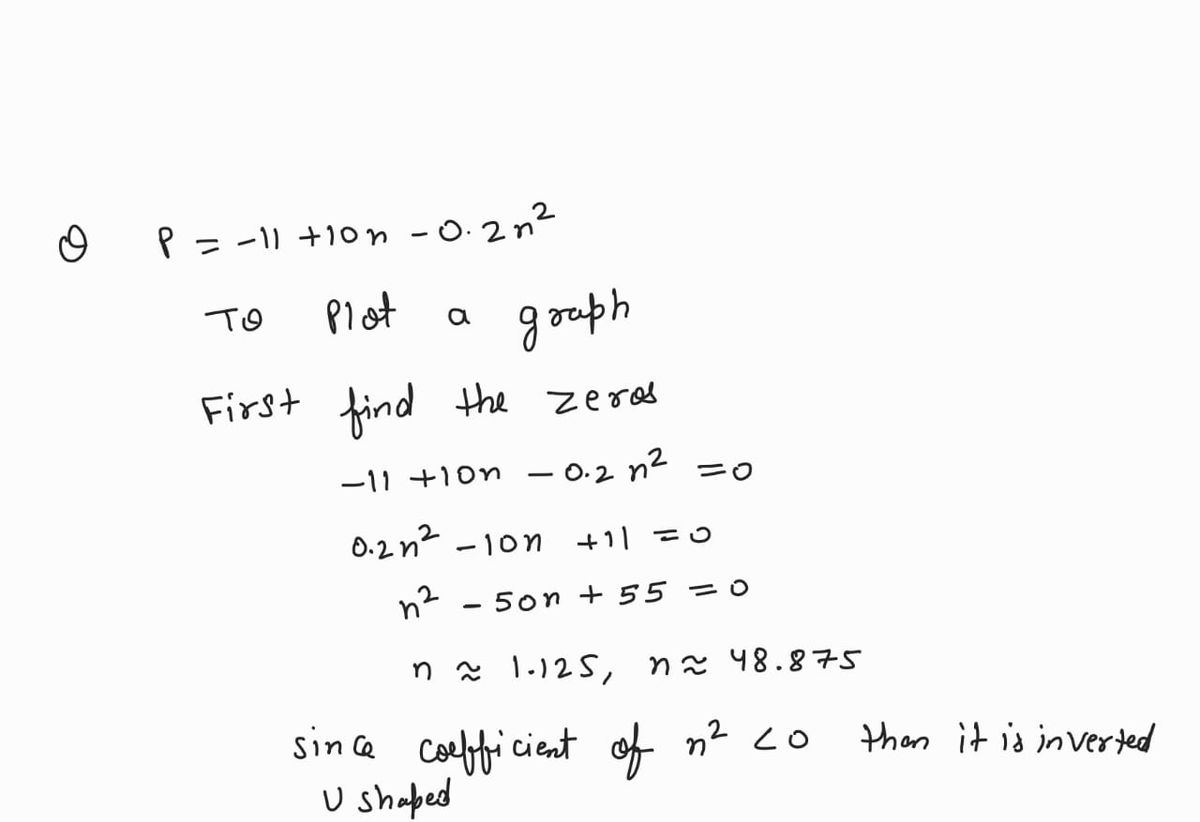 Q P = -11 +10n - 0.2n²
To Plot a graph
First find the zeros
-11 +10n - 0.2 n² =0
0.2n² -10n +11 =0
n² - 50n + 55 =0
n ≈ 1.125, n≈ 48.875
since coefficient of n² <0 then it is inverted
U shaped